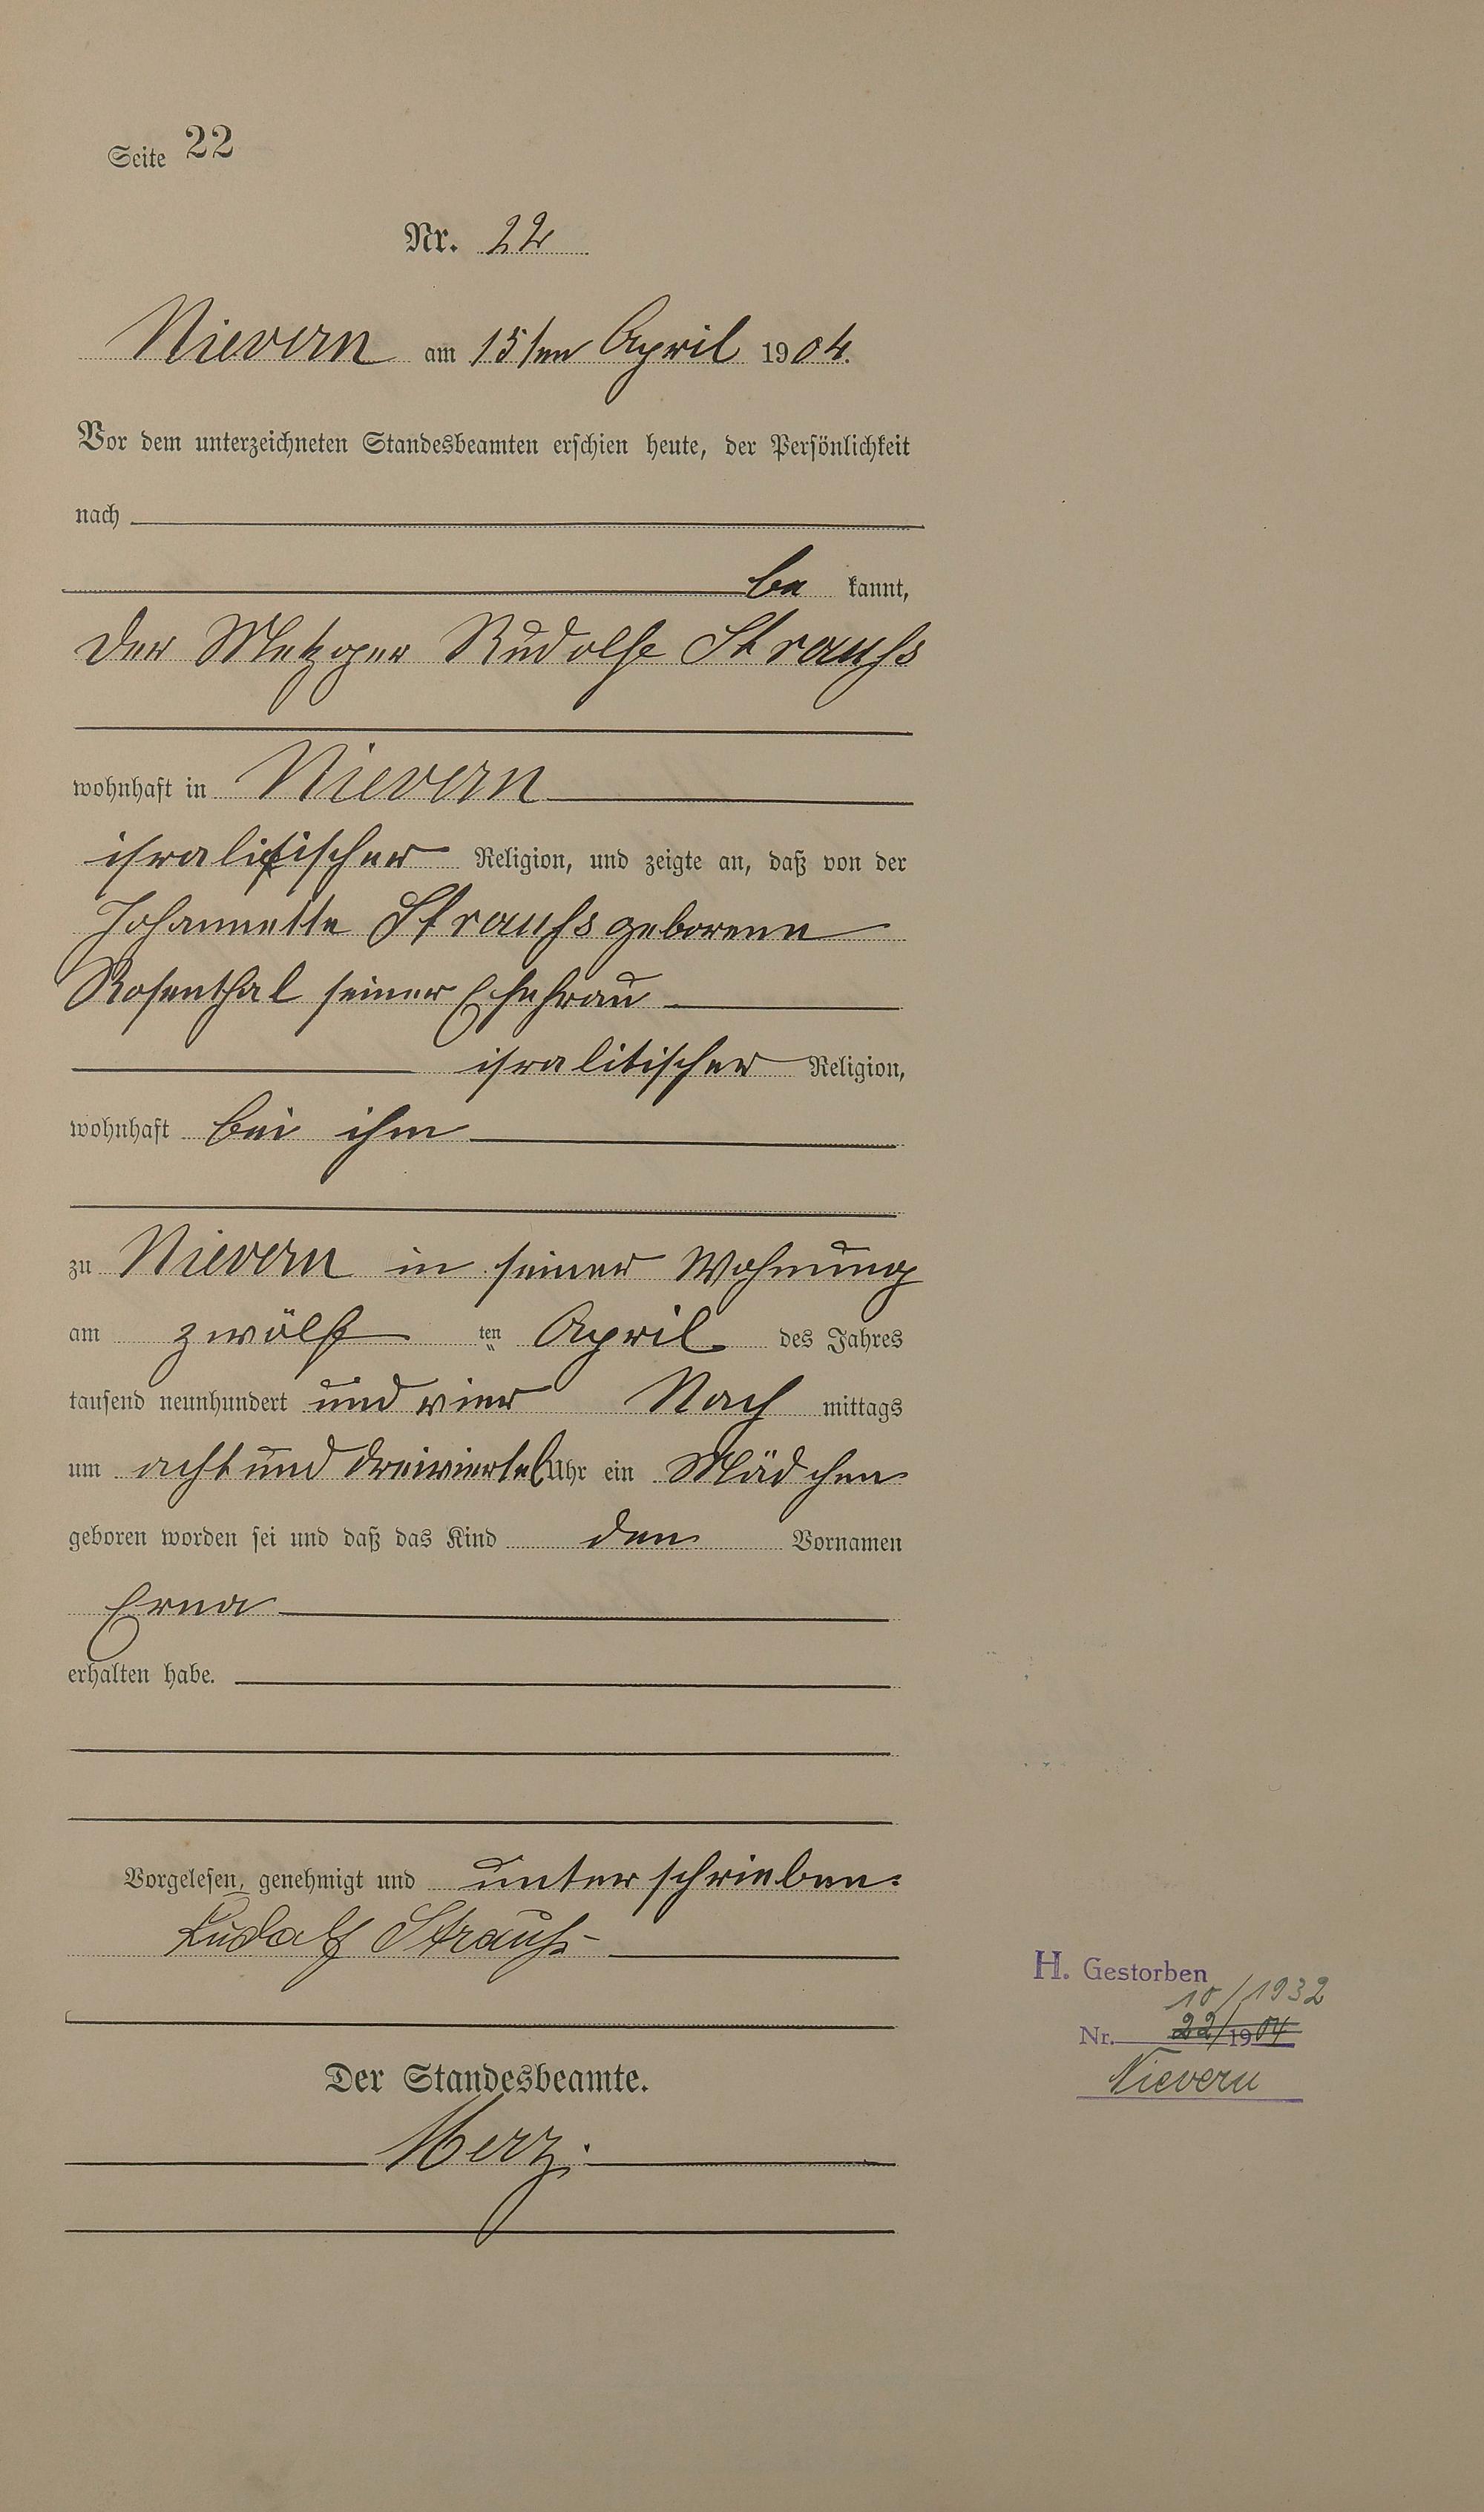 Seite 22
Nr. 22
Nievern am 15ten April 1904.
Vor dem unterzeichneten Standesbeamten erschien heute, der Persönlichkeit
nach
be kannt,
der Metzger Rudolf Strauß
wohnhaft in Nievern
isralitischer Religion, und zeigte an, daß von der
Johannette Strauß geborene
Rosenthal seiner Ehefrau
isralitischer Religion,
wohnhaft bei ihm
zu Nievern in seiner Wohnung
am zwölf ten April des Jahres
tausend neunhundert und vier Nach mittags
um acht und dreiviertel Uhr ein Mädchen
geboren worden sei und daß das Kind den Vornamen
Erna
erhalten habe.
Vorgelesen, genehmigt und unterschrieben.
Rudolf Strauß
Der Standesbeamte.
Merz.
H. Gestorben
10/1932
Nr. 22/1904
Nievern